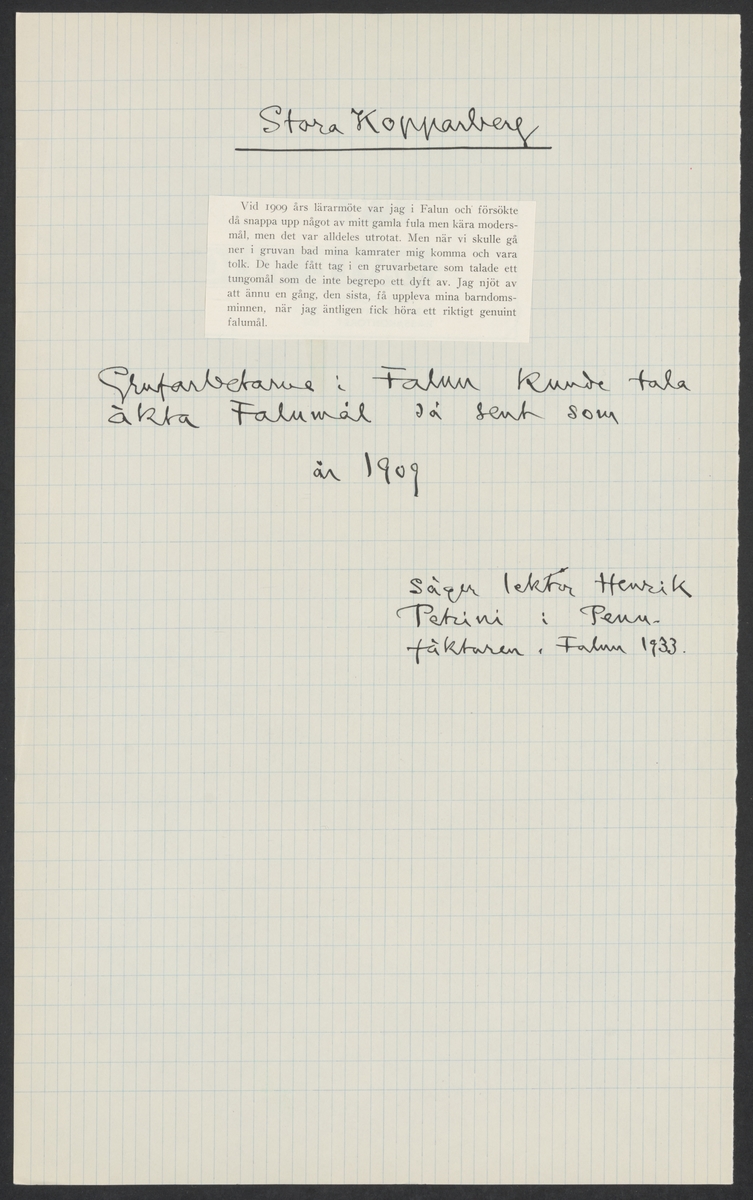 Stora Kopparberg
Vid 1909 års lärarmöte var jag i Falun och försökte
då snappa upp något av mitt gamla fula men kära moders-
mål, men det var alldeles utrotat. Men när vi skulle gå
ner i gruvan bad mina kamrater mig komma och vara
tolk. De hade fått tag i en gruvarbetare som talade ett
tungomål som de inte begrepo ett dyft av. Jag njöt av
att ännu en gång, den sista, få uppleva mina barndoms-
minnen, när jag äntligen fick höra ett riktigt genuint
falumål.
Grufarbetarne i Falun kunde tala
äkta Falumål så sent som
år 1909
säger lektor Henrik
Petrini i Penn-
fäktaren, Falun 1933.